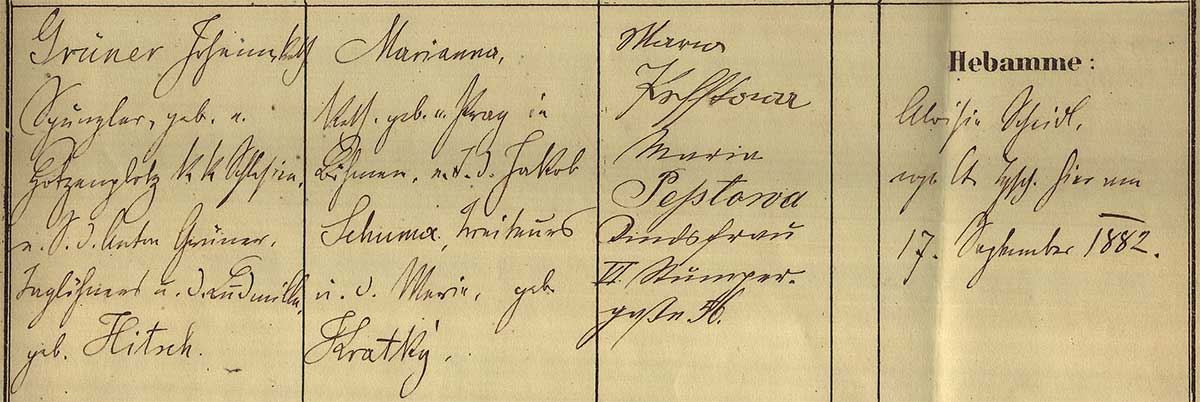 Grüner Johann, kath.
Spängler, geb. v.
Hotzenplotz k k Schlesien,
e. S. d. Anton Grüner,
Taglöhners u. d. Ludmilla,
geb. Hitsch.
Marianna,
kath. geb. v. Prag in
Böhmen, e. T. d. Jakob
Schuma, Traiteurs
u. d. Maria, geb.
Kratky.
Maria
Maria
Peßtowa
Dindsfrau
VI. Stumper-
gasse 56.
Hebamme :
Aloisia Scheidl,
hier am
17. September 1882.